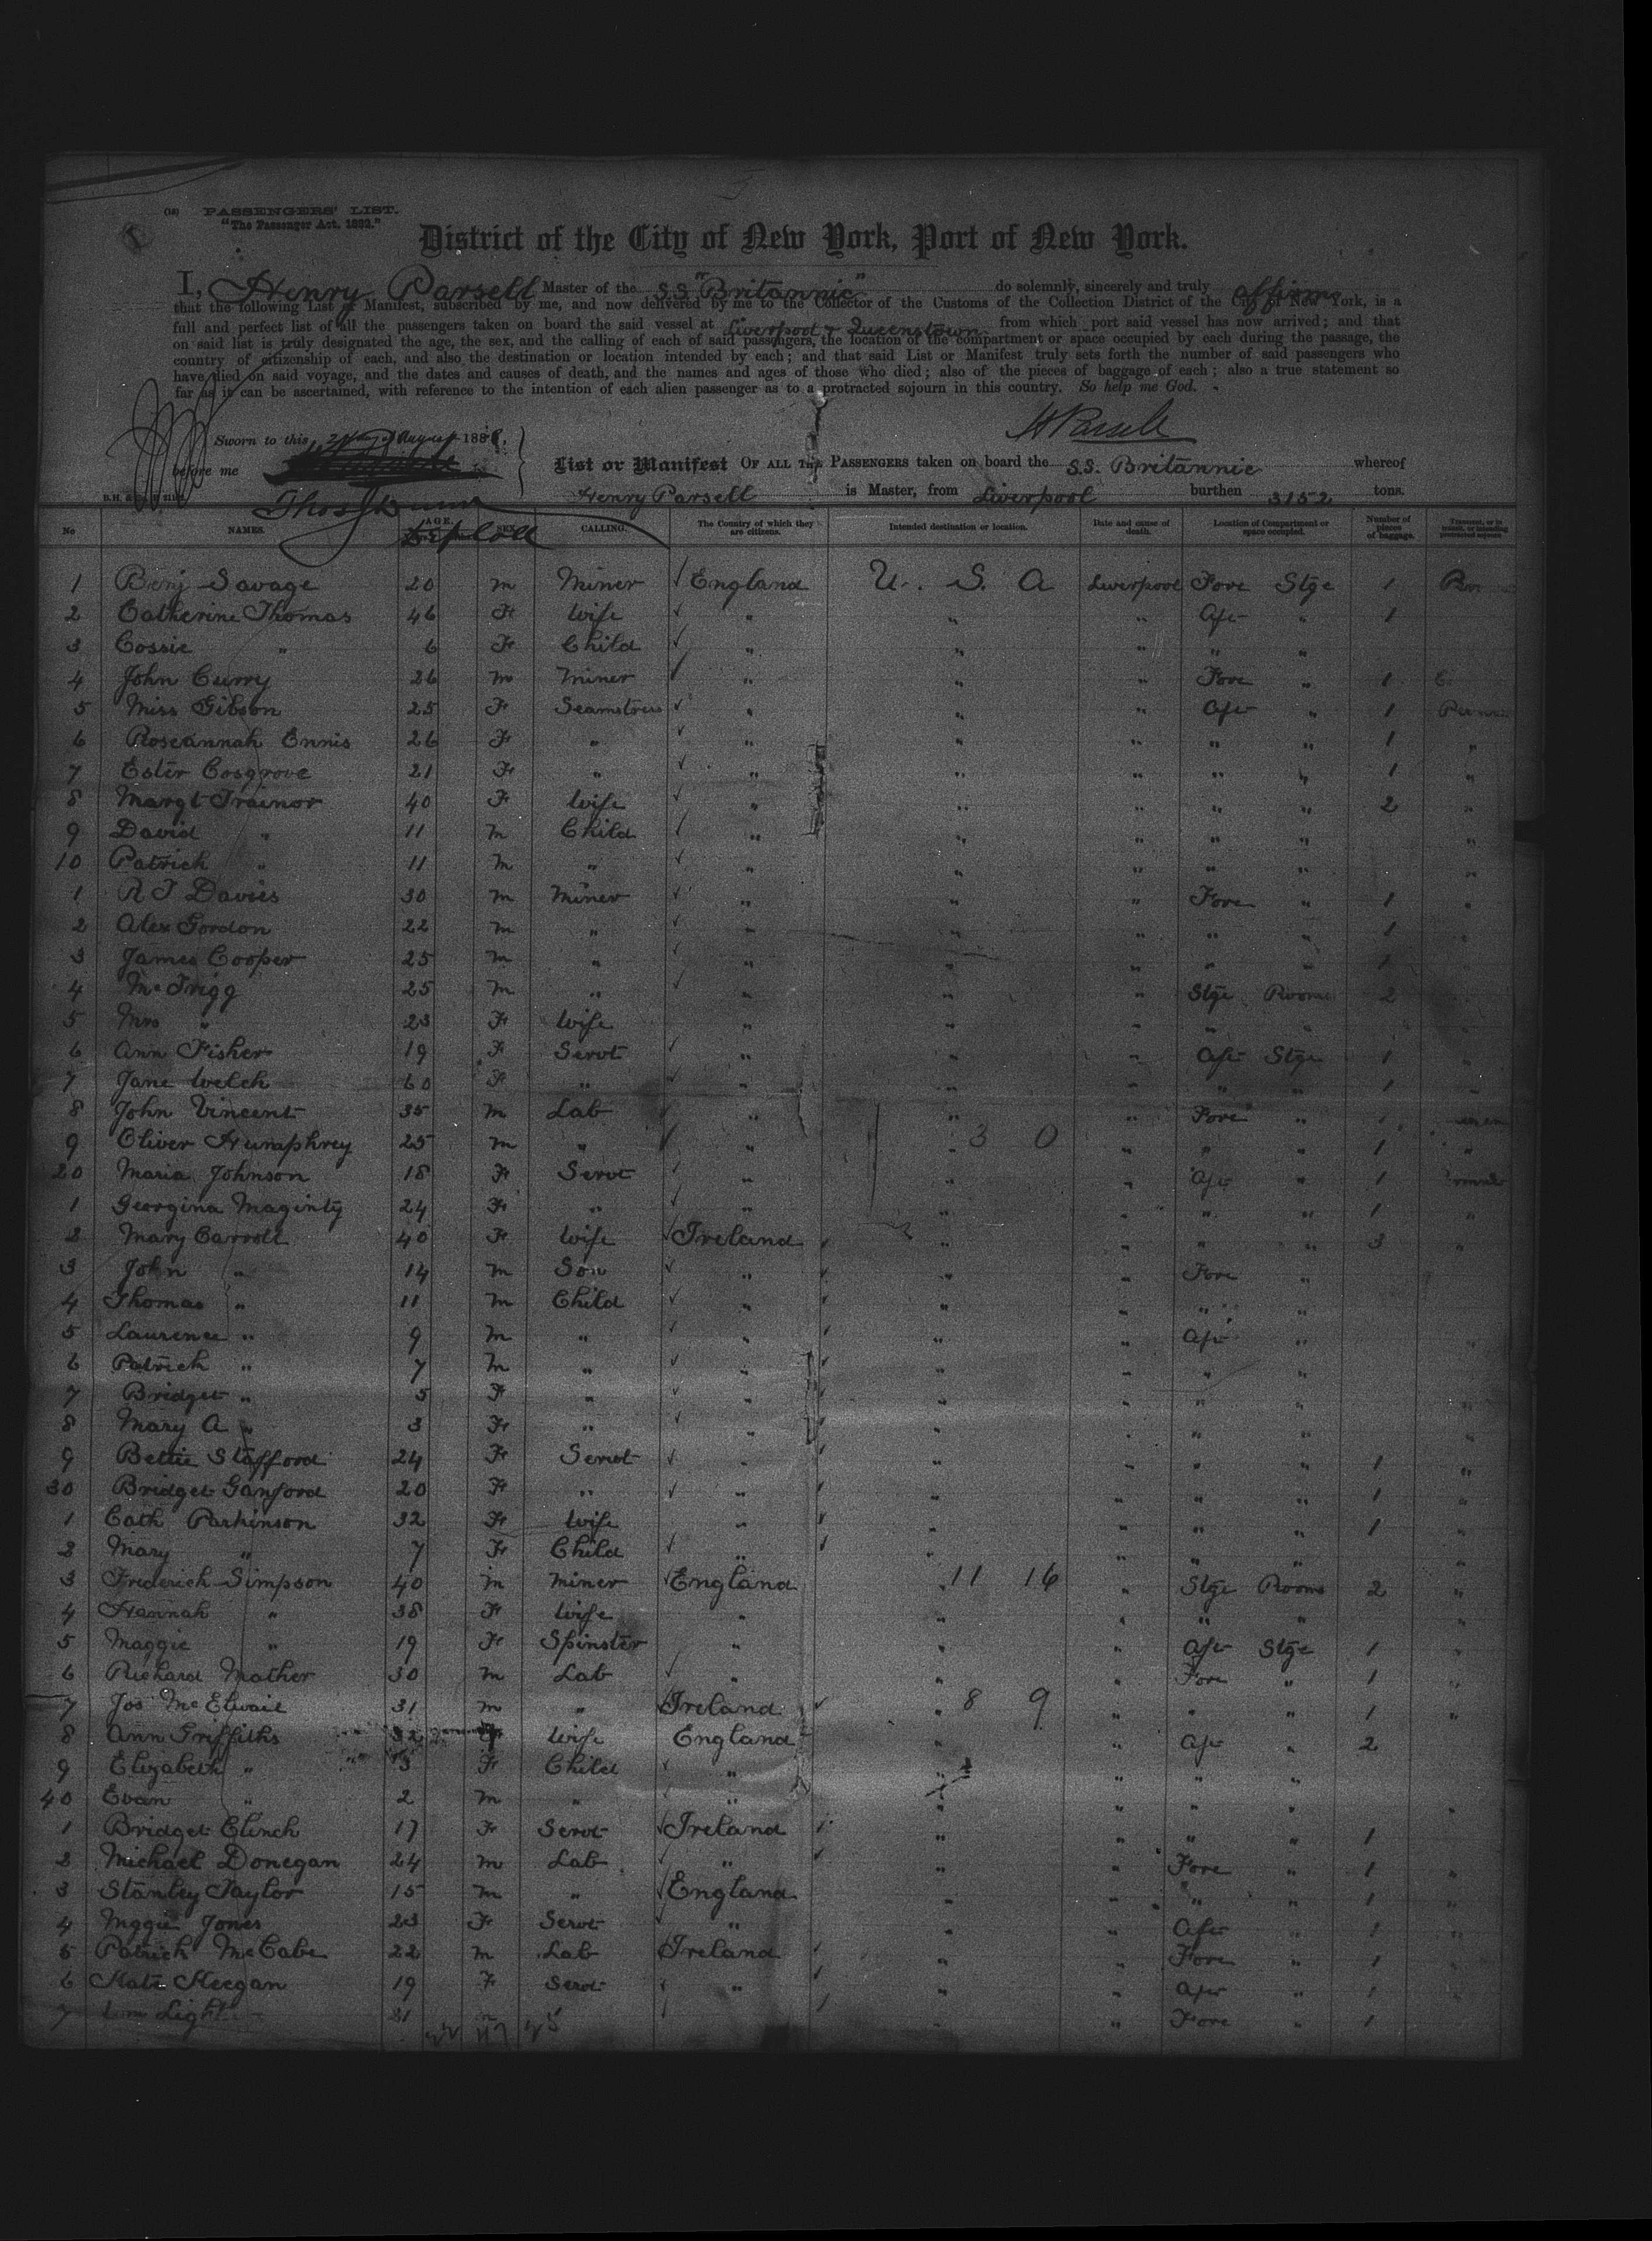 (18) PASSENGERS' LIST.
"The Passenger Act, 1882."
District of the City of New York, Port of New York.
I, Henry Parsell Master of the S.S. "Britannic" do solemnly, sincerely and truly affirm
that the following List or Manifest, subscribed by me, and now delivered by me to the Collector of the Customs of the Collection District of the City of New York, is a
full and perfect list of all the passengers taken on board the said vessel at Liverpool & Queenstown from which port said vessel has now arrived; and that
on said list is truly designated the age, the sex, and the calling of each of said passengers, the location of the compartment or space occupied by each during the passage, the
country of citizenship of each, and also the destination or location intended by each; and that said List or Manifest truly sets forth the number of said passengers who
have died on said voyage, and the dates and causes of death, and the names and ages of those who died; also of the pieces of baggage of each; also a true statement so
far as it can be ascertained, with reference to the intention of each alien passenger as to a protracted sojourn in this country. So help me God.
H Parsell
Sworn to this August 188
before me
Thos J Dunn
Dep Coll
List or Manifest OF ALL THE PASSENGERS taken on board the S.S. Britannic whereof
Henry Parsell is Master, from Liverpool burthen 3152 tons.
No NAMES. AGE. SEX. CALLING. The Country of which they are citizens. Intended destination or location. Date and cause of death. Location of Compartment or space occupied. Number of pieces of baggage. Transient, or in transit, or intending protracted sojourn
1 Benj Savage 20 m Miner England U. S. A Liverpool Fore Stge 1
2 Catherine Thomas 46 F Wife " " " Aft " 1
3 Cossie " 6 F Child " " " " "
4 John Curry 26 m Miner " " " Fore " 1
5 Miss Gibson 25 F Seamstress " " " Aft " 1
6 Roseannah Ennis 26 F " " " " " " 1 "
7 Ester Cosgrove 21 F " " " " " " 1 "
8 Margt Trainor 40 F Wife " " " " " 2 "
9 David " 11 m Child " " " " " "
10 Patrick " 11 m " " " " " " "
1 R T Davies 30 m Miner " " " Fore " 1 "
2 Alex Gordon 22 m " " " " " " 1 "
3 James Cooper 25 m " " " " " " 1 "
4 Mr Trigg 25 m " " " " Stge Rooms 2
5 Mrs " 23 F Wife " " " " "
6 Ann Fisher 19 F Servt " " " Aft Stge 1 "
7 Jane Welch 60 F " " " " " " 1 "
8 John Vincent 35 m Lab " " " Fore " 1
9 Oliver Humphrey 25 m " " " 3 0 " " " 1 "
20 Maria Johnson 18 F Servt " " " Aft " 1
1 Georgina Maginty 24 F " " " " " " 1 "
2 Mary Carroll 40 F Wife Ireland " " " " 3 "
3 John " 14 m Son " " " Fore "
4 Thomas " 11 m Child " " " " "
5 Laurence " 9 m " " " " Aft "
6 Patrick " 7 m " " " " " "
7 Bridget " 5 F " " " " " " "
8 Mary A " 3 F " " " " " " "
9 Bettie Stafford 24 F Servt " " " " " 1 "
30 Bridget Ganford 20 F " " " " " " 1 "
1 Cath Parkinson 32 F Wife " " " " " 1 "
2 Mary " 7 F Child " " " " " "
3 Frederick Simpson 40 m Miner England " 11 16 " Stge Rooms 2 "
4 Hannah " 38 F Wife " " " " " "
5 Maggie " 19 F Spinster " " " Aft Stge 1 "
6 Richard Mather 30 m Lab " " " Fore " 1 "
7 Jos McElwail 31 m " Ireland " 8 9 " " " 1 "
8 Ann Griffiths 32 F Wife England " " Aft " 2
9 Elizabeth " 3 F Child " " " " "
40 Evan " 2 m " " " " " " "
1 Bridget Clinch 17 F Servt Ireland " " " " 1
2 Michael Donegan 24 m Lab " " " Fore " 1 "
3 Stanley Taylor 15 m " England " " " " 1 "
4 Mggie Jones 23 F Servt " " " Aft " 1 "
5 Patrick McCabe 22 m Lab Ireland " " Fore " 1 "
6 Kate Keegan 19 F Servt " " " Aft " 1 "
7 Light m " Fore " 1